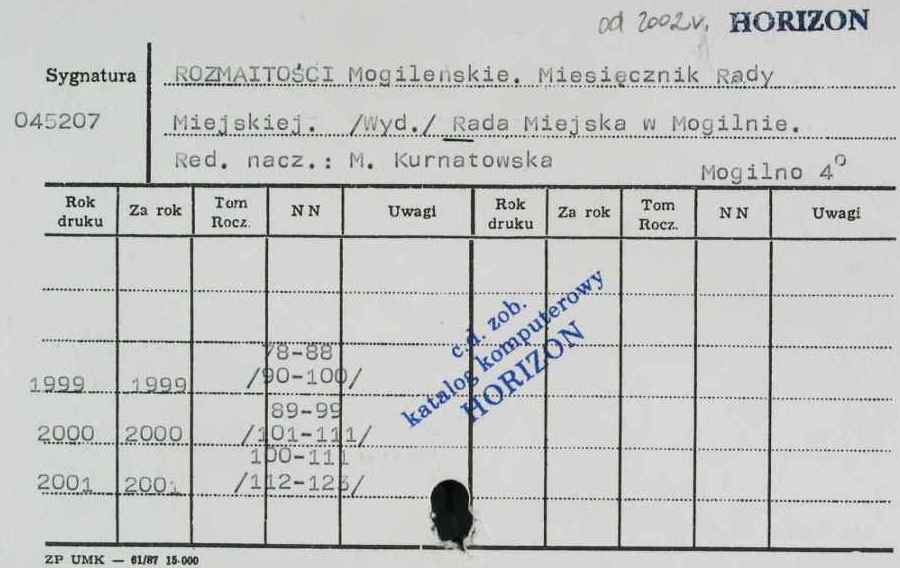 od 2002 r. HORIZON
Sygnatura ROZMAITOŚCI Mogileńskie. Miesięcznik Rady
045207 Miejskiej. /Wyd./ Rada Miejska w Mogilnie.
Red. nacz.: M. Kurnatowska
Mogilno 4°
Rok druku Za rok Tom Rocz. NN Uwagi Rok druku Za rok Tom Rocz. NN Uwagi
78-88
1999 1999 /90-100/
89-99
2000 2000 /101-111/
100-111
2001 2001 /112-123/
c.d. zob.
katalog komputerowy
HORIZON
ZP UMK — 61/87 15-000